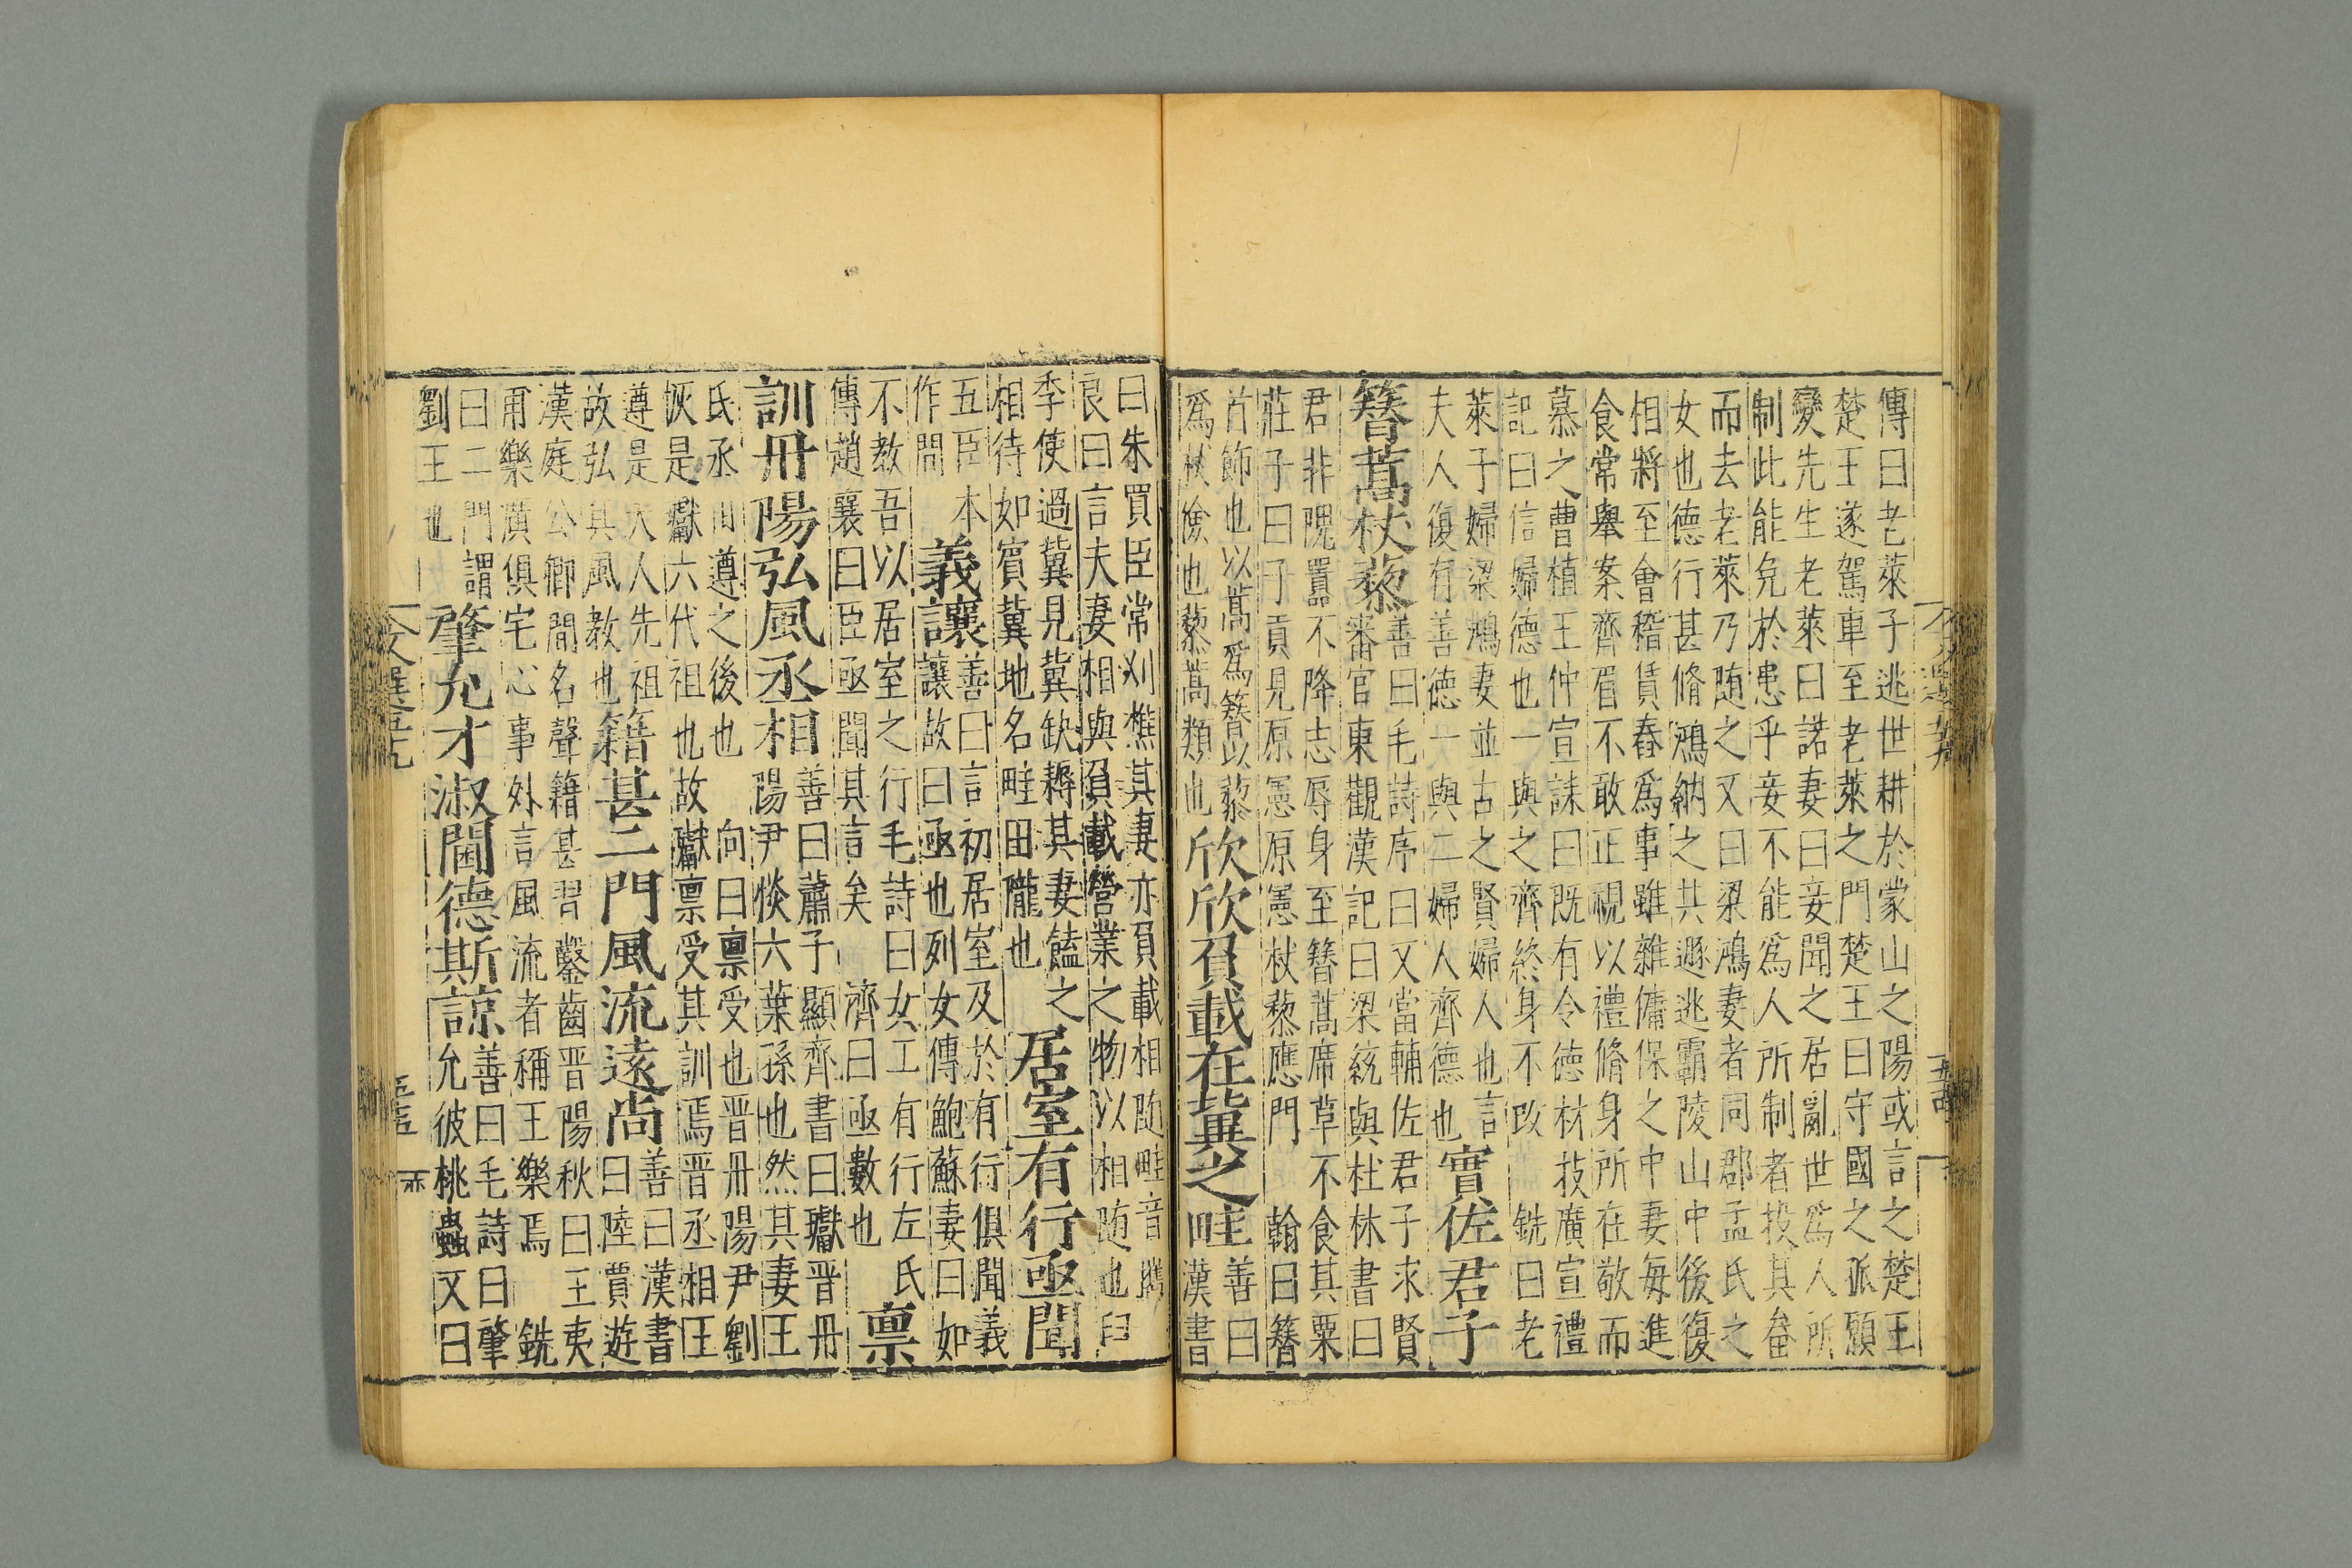 傳曰老萊子逃世耕於蒙山之陽或言之楚王
楚王遂駕車至老萊之門楚王曰守國之孤願
變先生老萊曰諾妻曰妾聞之居亂世爲人所
制此能免於患乎妾不能爲人所制者投其畚
而去老萊乃随之又曰梁鴻妻者同郡孟氏之
女也德行甚脩鴻納之共遯逃霸陵山中後復
相將至會稽賃舂爲事雖雜傭保之中妻每進
食常舉案齊眉不敢正視以禮脩身所在敬而
慕之曹植王仲宣誄曰既有令德材技廣宣禮
記曰信婦德也一與之齊終身不改 銑曰老
萊子婦梁鴻妻並古之賢婦人也言
夫人復有善德一與二婦人齊德也
實佐君子
簪蒿杖藜
善曰毛詩序曰又當輔佐君子求賢
審官東觀漢記曰梁統與杜林書曰
君非隗囂不降志辱身至簪蒿席草不食其粟
莊子曰子貢見原憲原憲杖藜應門 翰曰簪
首飾也以蒿爲簪以藜
爲杖儉也藜蒿類也
欣欣負載在兾之畦
善曰
漢書
曰朱買臣常刈樵其妻亦負載相随畦音攜
良曰言夫妻相與負載營業之物以相随也臼
季使過冀見冀缺耨其妻饁之
相待如賓冀地名畦田隴也
居室有行亟聞
五臣本
作問
義讓
善曰言初居室及於有行俱聞義
讓故曰亟也列女傳鮑蘇妻曰如
不教吾以居室之行毛詩曰女工有行左氏
傳趙襄曰臣亟聞其言矣 濟曰亟數也
禀
訓丹陽弘風丞相
善曰蕭子顯齊書曰瓛晋丹
陽尹惔六葉孫也然其妻王
氏丞相遵之後也 向曰禀受也晋丹陽尹劉
惔是瓛六代祖也故瓛禀受其訓焉晋丞相王
遵是夫人先祖
故弘其風教也
籍甚二門風流遠尚
善曰漢書
曰陸賈遊
漢庭公卿間名聲籍甚習鑿齒晋陽秋曰王夷
甫樂廣俱宅心事外言風流者稱王樂焉 銑
曰二門謂
劉王也
肇允才淑閫德斯諒
善曰毛詩曰肇
允彼桃蟲又曰